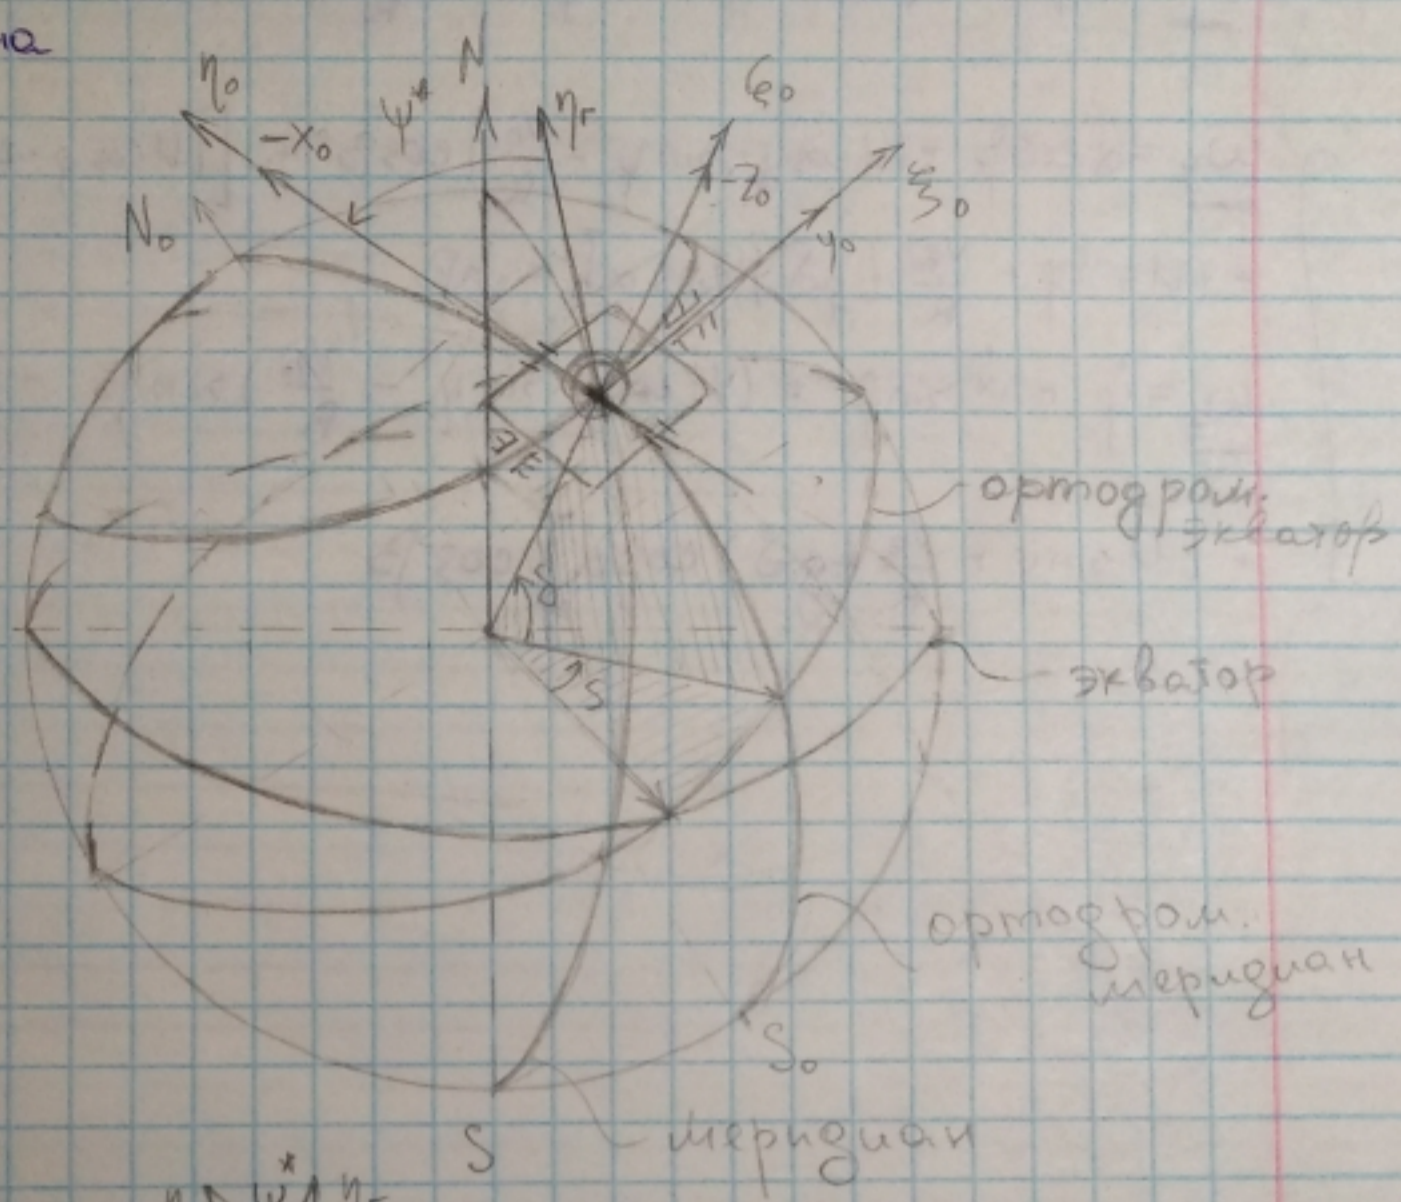 на
N
η₀
ψ*
ηг
ζ₀
-x₀
-z₀
ξ₀
N₀
y₀
ортодром.
экватор
S
экватор
ортодром.
меридиан
S₀
S
меридиан
ψ*